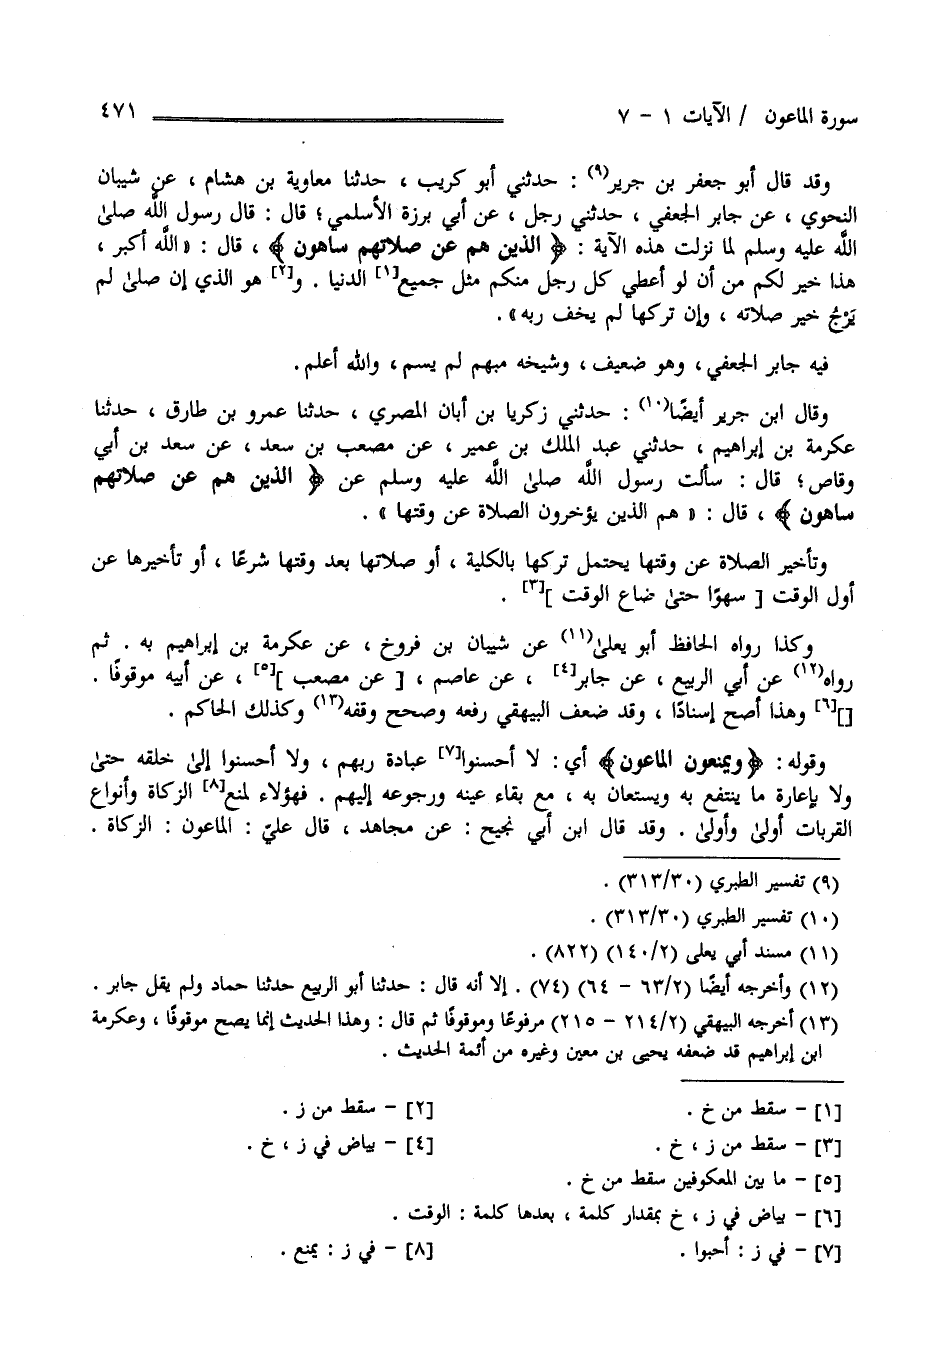 سورة الماعون / الآيات ١ - ٧ ٤٧١
وقد قال أبو جعفر بن جرير(٩) : حدثني أبو كريب ، حدثنا معاوية بن هشام ، عن شيبان
النحوي ، عن جابر الجعفي ، حدثني رجل ، عن أبي برزة الأسلمي؛ قال : قال رسول اللَّه صلىٰ
اللَّه عليه وسلم لما نزلت هذه الآية : ﴿ الذين هم عن صلاتهم ساهون ﴾ ، قال : « اللَّه أكبر ،
هذا خير لكم من أن لو أعطي كل رجل منكم مثل جميع[١] الدنيا . و[٢] هو الذي إن صلىٰ لم
يَرْجُ خير صلاته ، وإن تركها لم يخف ربه» .
فيه جابر الجعفي ، وهو ضعيف ، وشيخه مبهم لم يسم ، والله أعلم .
وقال ابن جرير أيضًا(١٠) : حدثني زكريا بن أبان المصري ، حدثنا عمرو بن طارق ، حدثنا
عكرمة بن إبراهيم ، حدثني عبد الملك بن عمير ، عن مصعب بن سعد ، عن سعد بن أبي
وقاص؛ قال : سألت رسول اللَّه صلىٰ اللَّه عليه وسلم عن ﴿ الذين هم عن صلاتهم
ساهون ﴾ ، قال : « هم الذين يؤخرون الصلاة عن وقتها » .
وتأخير الصلاة عن وقتها يحتمل تركها بالكلية ، أو صلاتها بعد وقتها شرعًا ، أو تأخيرها عن
أول الوقت [ سهوًا حتىٰ ضاع الوقت ][٣] .
وكذا رواه الحافظ أبو يعلىٰ(١١) عن شيبان بن فروخ ، عن عكرمة بن إبراهيم به . ثم
رواه(١٢) عن أبي الربيع ، عن جابر[٤] ، عن عاصم ، [ عن مصعب ][٥] ، عن أبيه موقوفًا .
[][٦] وهذا أصح إسنادًا ، وقد ضعف البيهقي رفعه وصحح وقفه(١٣) وكذلك الحاكم .
وقوله : ﴿ويمنعون الماعون﴾ أي : لا أحسنوا[٧] عبادة ربهم ، ولا أحسنوا إلىٰ خلقه حتىٰ
ولا بإعارة ما ينتفع به ويستعان به ، مع بقاء عينه ورجوعه إليهم . فهؤلاء لمنع[٨] الزكاة وأنواع
القربات أولىٰ وأولىٰ . وقد قال ابن أبي نجيح : عن مجاهد ، قال عليّ : الماعون : الزكاة .
(٩) تفسير الطبري (٣١٣/٣٠) .
(١٠) تفسير الطبري (٣١٣/٣٠) .
(١١) مسند أبي يعلى (١٤٠/٢) (٨٢٢) .
(١٢) وأخرجه أيضًا (٦٣/٢ - ٦٤) (٧٤) . إلا أنه قال : حدثنا أبو الربيع حدثنا حماد ولم يقل جابر .
(١٣) أخرجه البيهقي (٢١٤/٢ - ٢١٥) مرفوعًا وموقوفًا ثم قال : وهذا الحديث إنما يصح موقوفًا ، وعكرمة
ابن إبراهيم قد ضعفه يحيى بن معين وغيره من أئمة الحديث .
[١] - سقط من خ . [٢] - سقط من ز .
[٣] - سقط من ز ، خ . [٤] - بياض في ز ، خ .
[٥] - ما بين المعكوفين سقط من خ .
[٦] - بياض في ز ، خ بمقدار كلمة ، بعدها كلمة : الوقت .
[٧] - في ز : أحبوا . [٨] - في ز : يمنع .